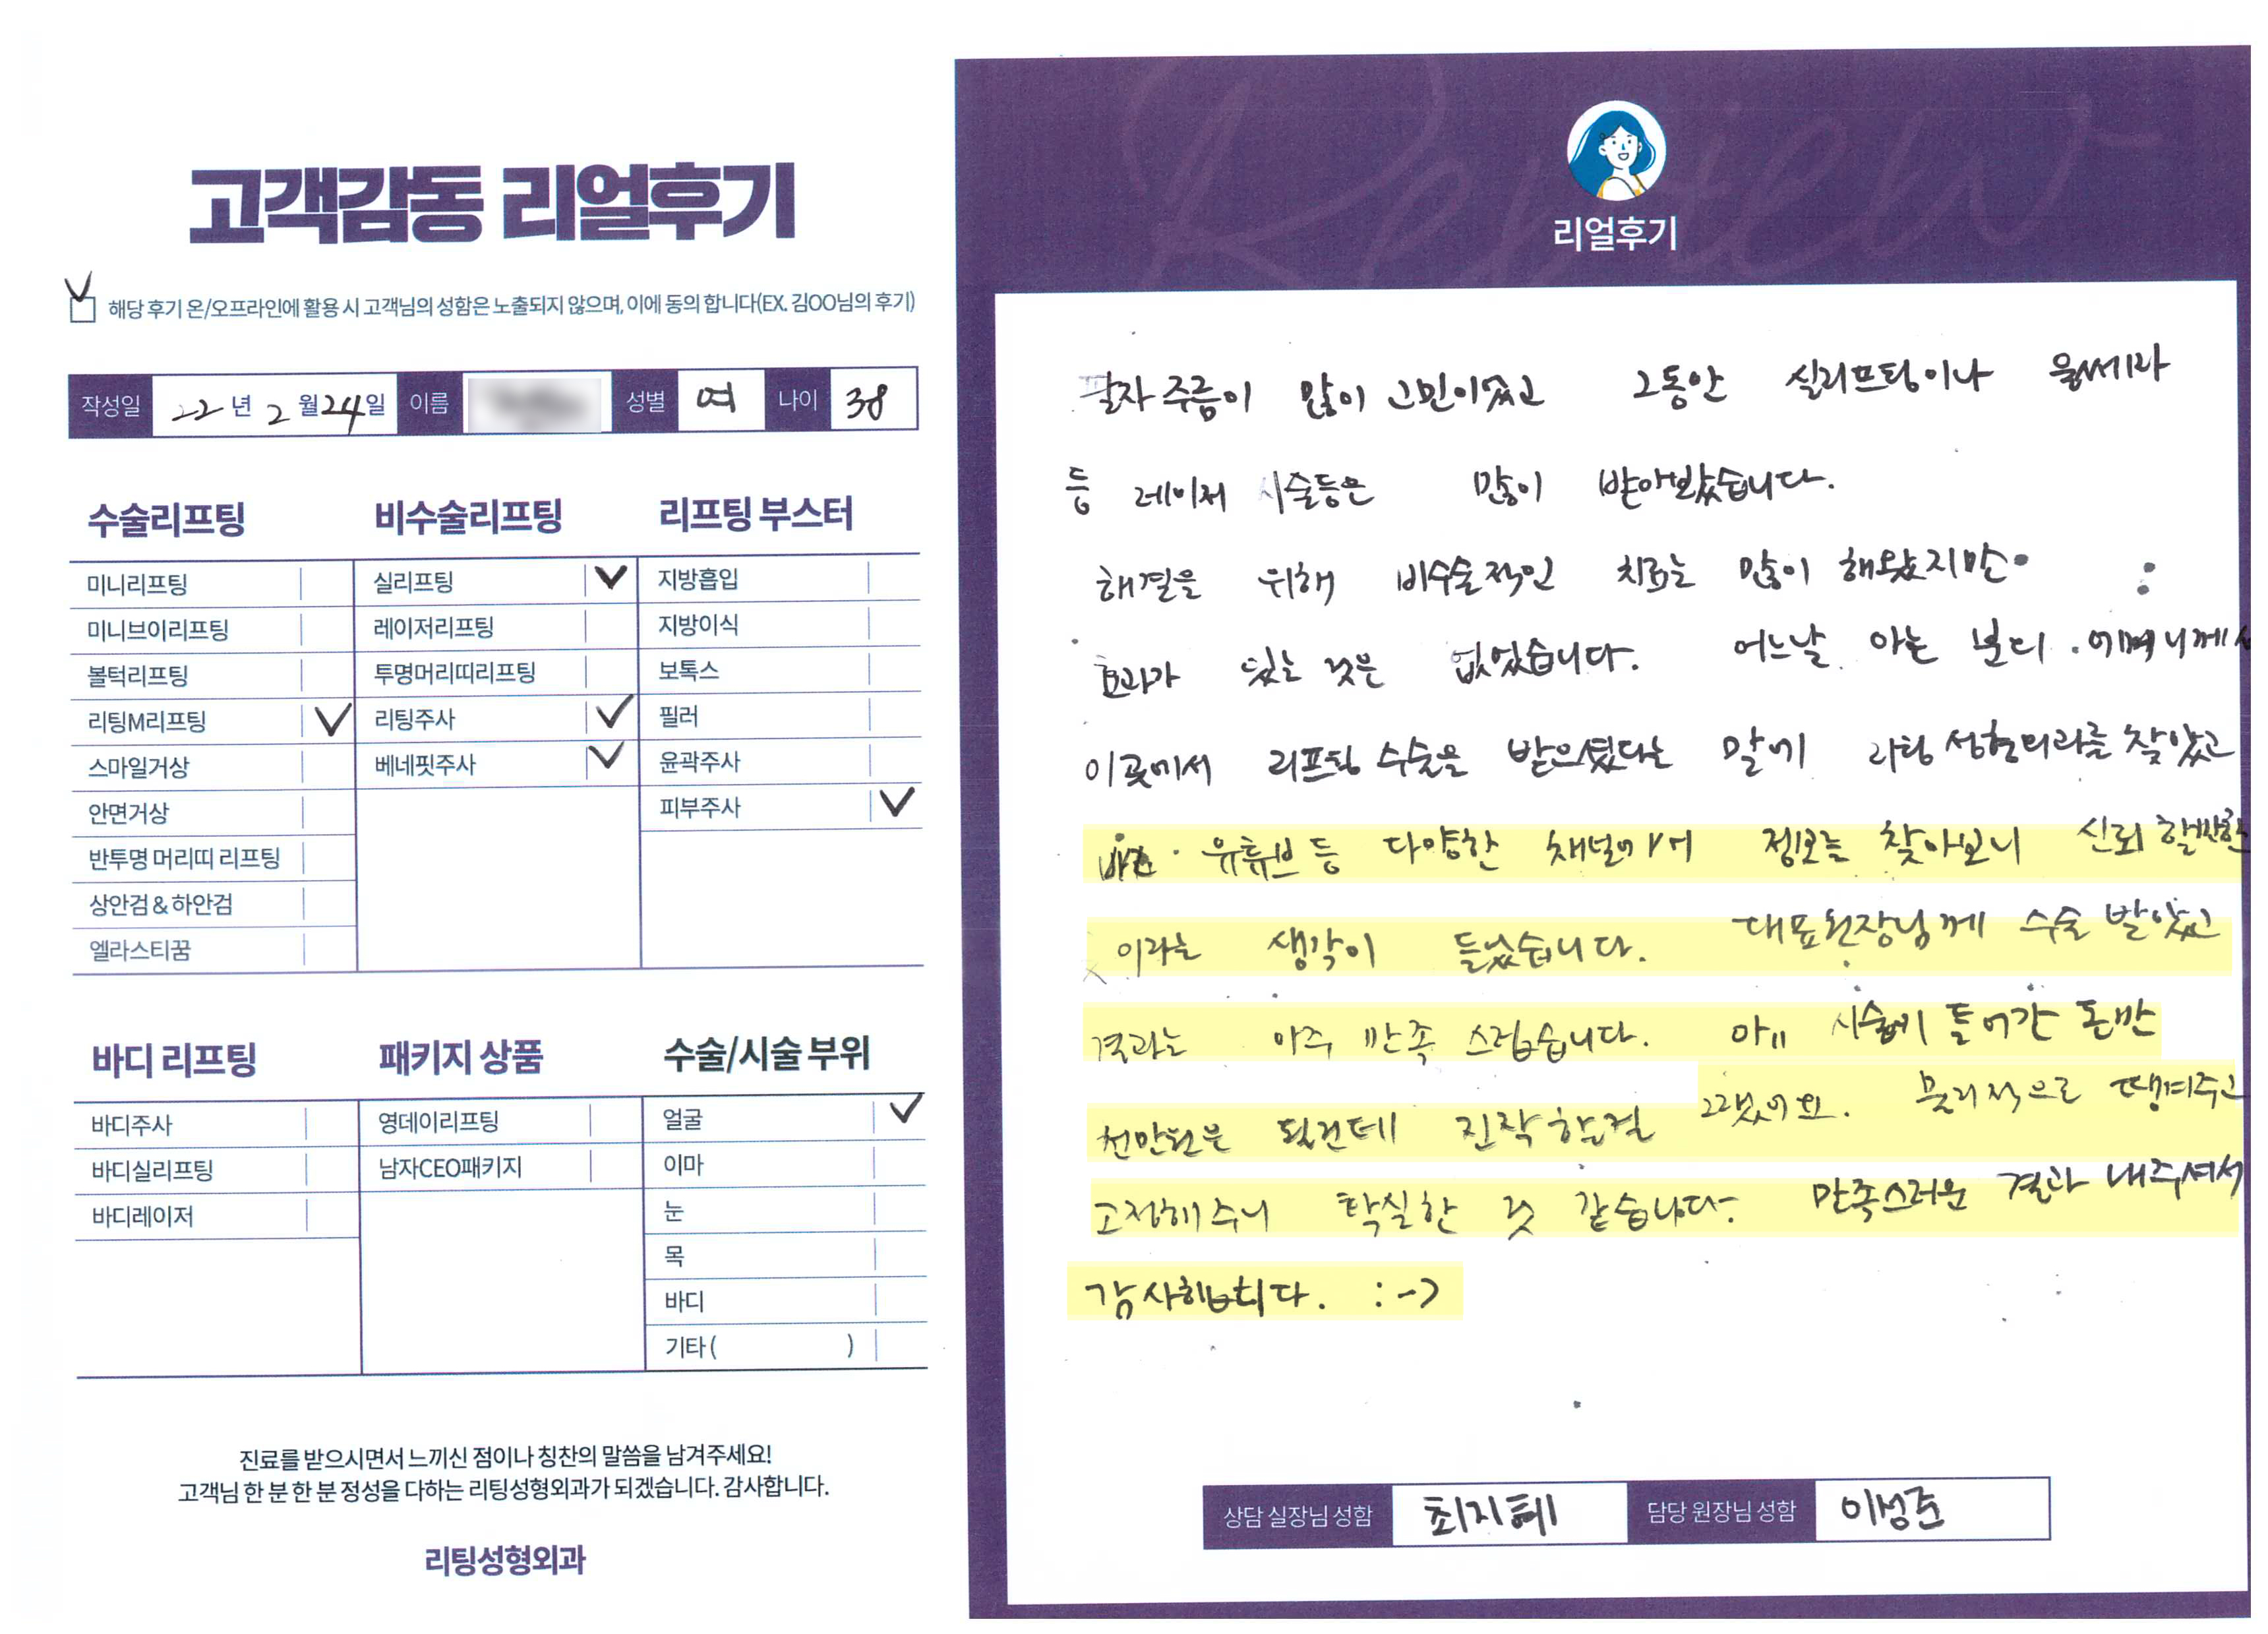 고객감동 리얼후기
해당 후기 온/오프라인에 활용 시 고객님의 성함은 노출되지 않으며, 이에 동의 합니다(EX. 김OO님의 후기)
작성일 22년 2월 24일 이름 성별 여 나이 38
수술리프팅
미니리프팅
미니브이리프팅
볼턱리프팅
리팅M리프팅
스마일거상
안면거상
반투명 머리띠 리프팅
상안검 & 하안검
엘라스티꿈
비수술리프팅
실리프팅
레이저리프팅
투명머리띠리프팅
리팅주사
베네핏주사
리프팅 부스터
지방흡입
지방이식
보톡스
필러
윤곽주사
피부주사
바디 리프팅
바디주사
바디실리프팅
바디레이저
패키지 상품
영데이리프팅
남자CEO패키지
수술/시술 부위
얼굴
이마
눈
목
바디
기타( )
진료를 받으시면서 느끼신 점이나 칭찬의 말씀을 남겨주세요!
고객님 한 분 한 분 정성을 다하는 리팅성형외과가 되겠습니다. 감사합니다.
리팅성형외과
Review
리얼후기
팔자 주름이 많이 고민이었고 그동안 실리프팅이나 울쎄라
등 레이저 시술등은 많이 받아봤습니다.
해결을 위해 비수술적인 치료는 많이 해왔지만
효과가 있는 것은 없었습니다. 어느날 아는 분의 어머니께서
이곳에서 리프팅 수술을 받으셨다는 말에 리팅 성형외과를 찾았고
유튜브 등 다양한 채널에서 정보를 찾아보니 신뢰 할만한
이라는 생각이 들었습니다. 대표원장님께 수술 받았고
결과는 아주 만족 스럽습니다. 시술에 들어간 돈만
천만원은 될건데 진작할걸 그랬어요. 물리적으로 땡겨주고
고정해주니 확실한 것 같습니다. 만족스러운 결과 내주셔서
감사합니다. :->
상담 실장님 성함 최지혜 담당 원장님 성함 이성준